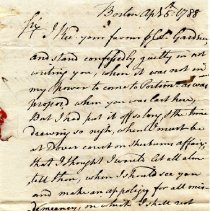 Boston Ap. 5th 1788
Sir I Rec'd your favour of Col. Gardner
and stand confessedly guilty in not
writing you, when it was not in
my power to come to as was
propos'd when you was last here,
But I had put it off so long, the time
drawing so nigh, when I must be
at Dover court on the same affair,
that I thought I would let it all alone
till then, when I should see you
and make an apology for all mis
demeanors, on which I shall not